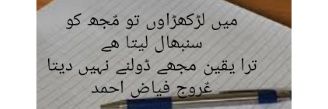 میں لڑکھڑاوں تو مُجھ کو
سنبھال لیتا ھے
ترا یقین مجھے ڈولنے نہیں دیتا
عُروج فیاض احمد